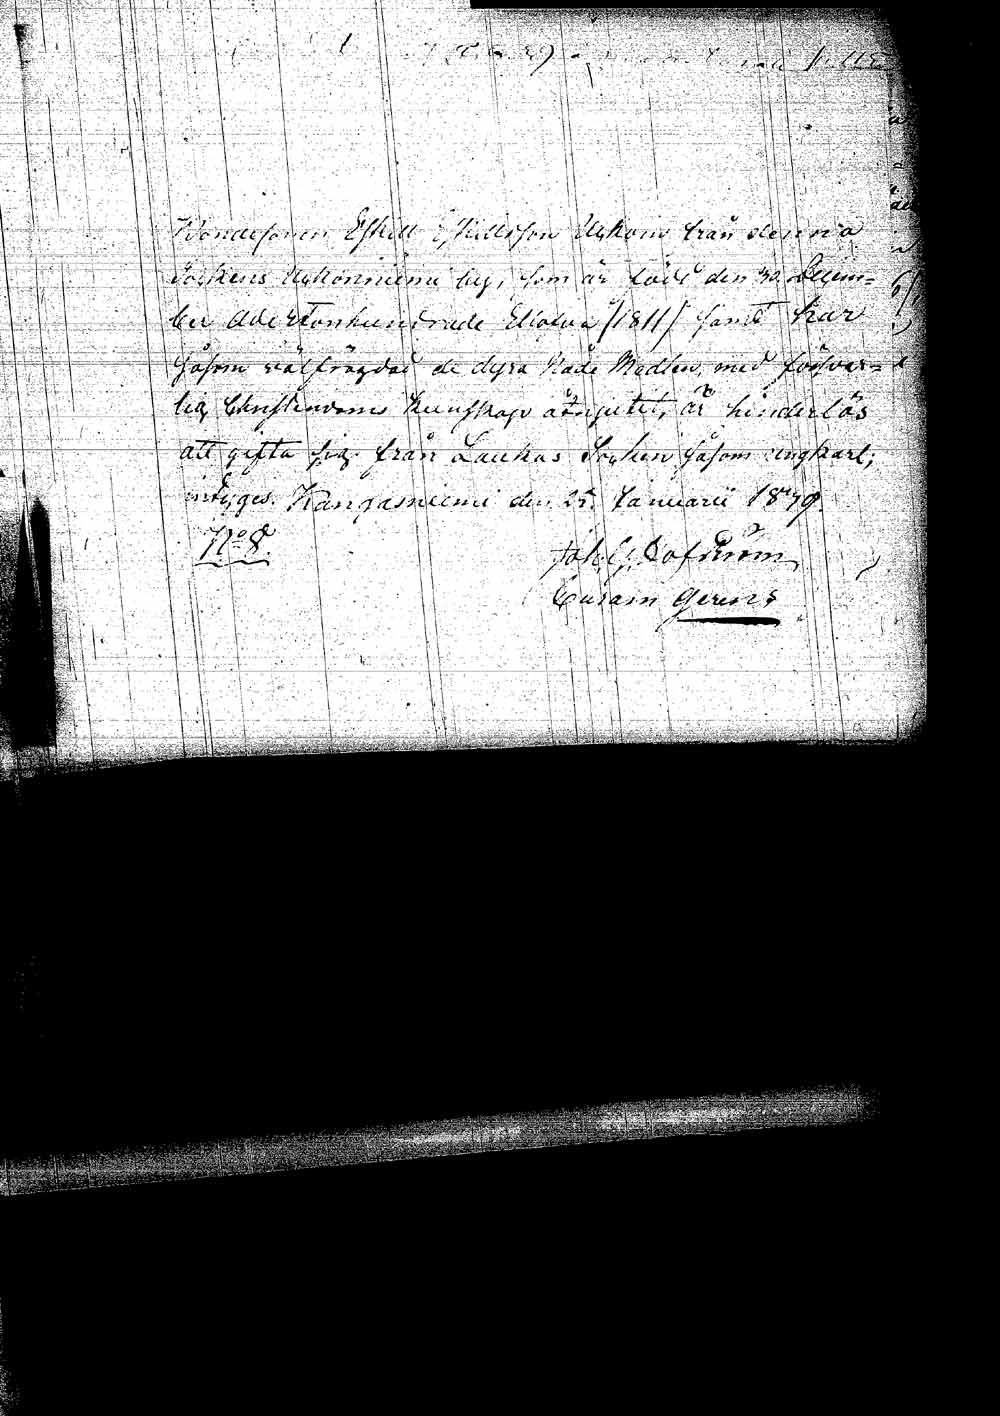 Bondesonen Eskill Eskillsson Ukkoin från denna
Sockens Ukkoniemi by, som är född den 30 Decem=
ber Adertonhundrade Ellofva /1811/ samt har
såsom välfrägdad de dyra Nåde Medlen, med försvar=
lig Christendoms Kunskap åtnjutit, är hinderlös
att gifta sig från Laukas Socken såsom ungkarl;
intyges. Kangasniemi den 25. Januarii 1839.
No 8. Joh. G. Lofström
Curam gerens